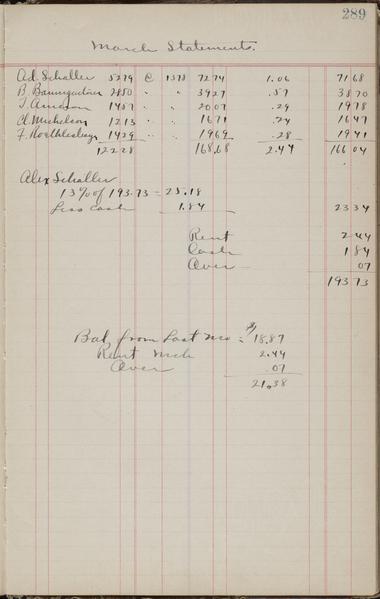 289
March Statements.
Ad. Schaller 5279 @ 1378 72.74 1.06 71 68
B. Baumgartner 2850 " " 39 27 .57 38 70
T. Amason 1457 " " 20 07 .29 19 78
A. Michelson 1213 " " 16 71 .24 16 47
F. 1429 " " 19 69 .28 19 41
12228 168.68 2.44 166 04
Alex Schaller
13% of 193.73 = 25.18
Less Cash 1.84 23 34
Rent 2 44
Cash 1 84
Over 07
193 73
Bal. from Last Mo = $18.87
Rent Mch 2.44
Over .07
21.38